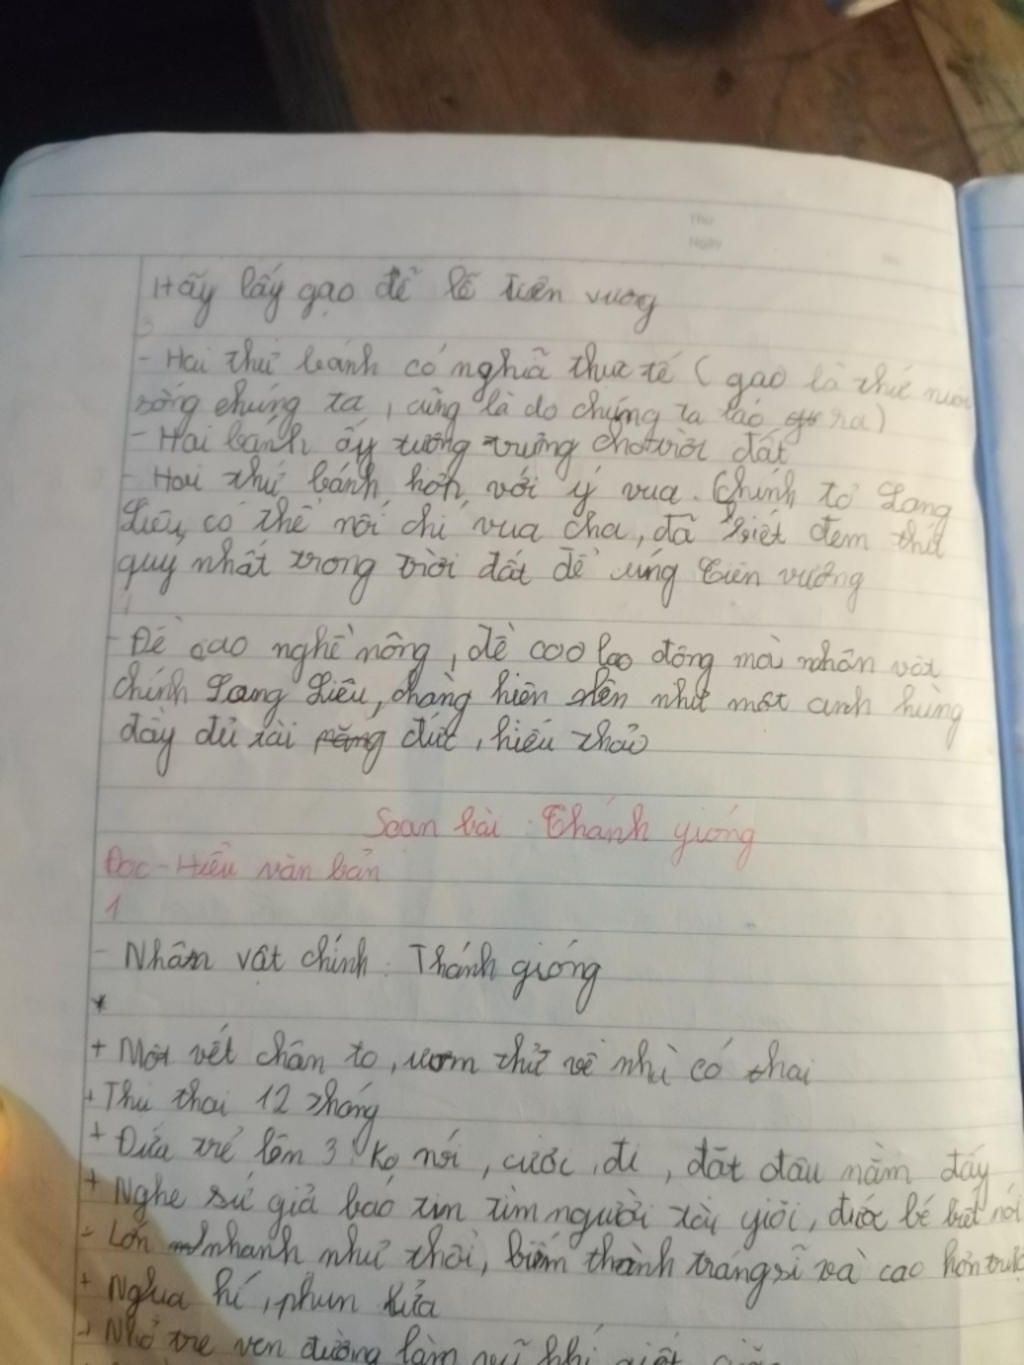 Thứ
Ngày
Hãy lấy gạo để lễ tiên vương
- Hai thứ bánh có nghiã thực tế ( gạo là thứ nuôi
sống chúng ta , cũng là do chúng ta tạo ra)
- Hai bánh ấy tượng trưng cho trời đất
- Hai thứ bánh hợp với ý vua. Chính tỏ Lang
Liêu có thể nối chí vua cha, đã biết đem thứ
quý nhất trong trời đất để cúng Tiên vương
- Đề cao nghề nông, đề cao lao động mà nhân vật
chính Lang Liêu, chàng hiện lên như một anh hùng
đầy đủ tài đức, hiếu thảo
Soạn bài : Thánh gióng
Đọc - Hiểu văn bản
1
- Nhân vật chính : Thánh gióng
*
+ Một vết chân to, ướm thử về nhì có thai
+ Thụ thai 12 tháng
+ Đứa trẻ lên 3 ko nói, cười, đi, đặt đâu nằm đấy
+ Nghe sứ giả báo tin tìm người tài giỏi, đứa bé biết nói
- Lớn nhanh như thổi, biến thành tráng sĩ và cao hơn
+ Ngựa hí, phun lửa
+ Nhổ tre ven đường làm vũ khí giết giặc